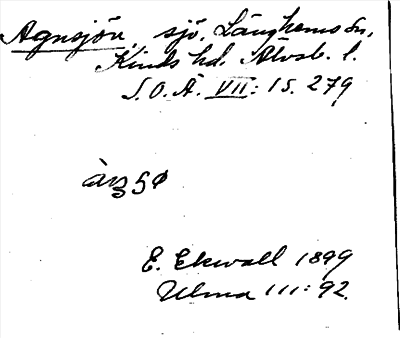 Agnsjön, sjö, Länghems sn,
Kinds hd. Älvsb. l.
S.O.Ä. VII: 1 s. 279
E. Ekwall 1899
Ulma 111:92.